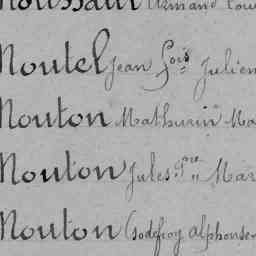 Moussaut Armand Lou
Moutel Jean fois Julien
Mouton Mathurin Ma
Mouton Jules Pre Mar
Mouton Godefroy Alphonse